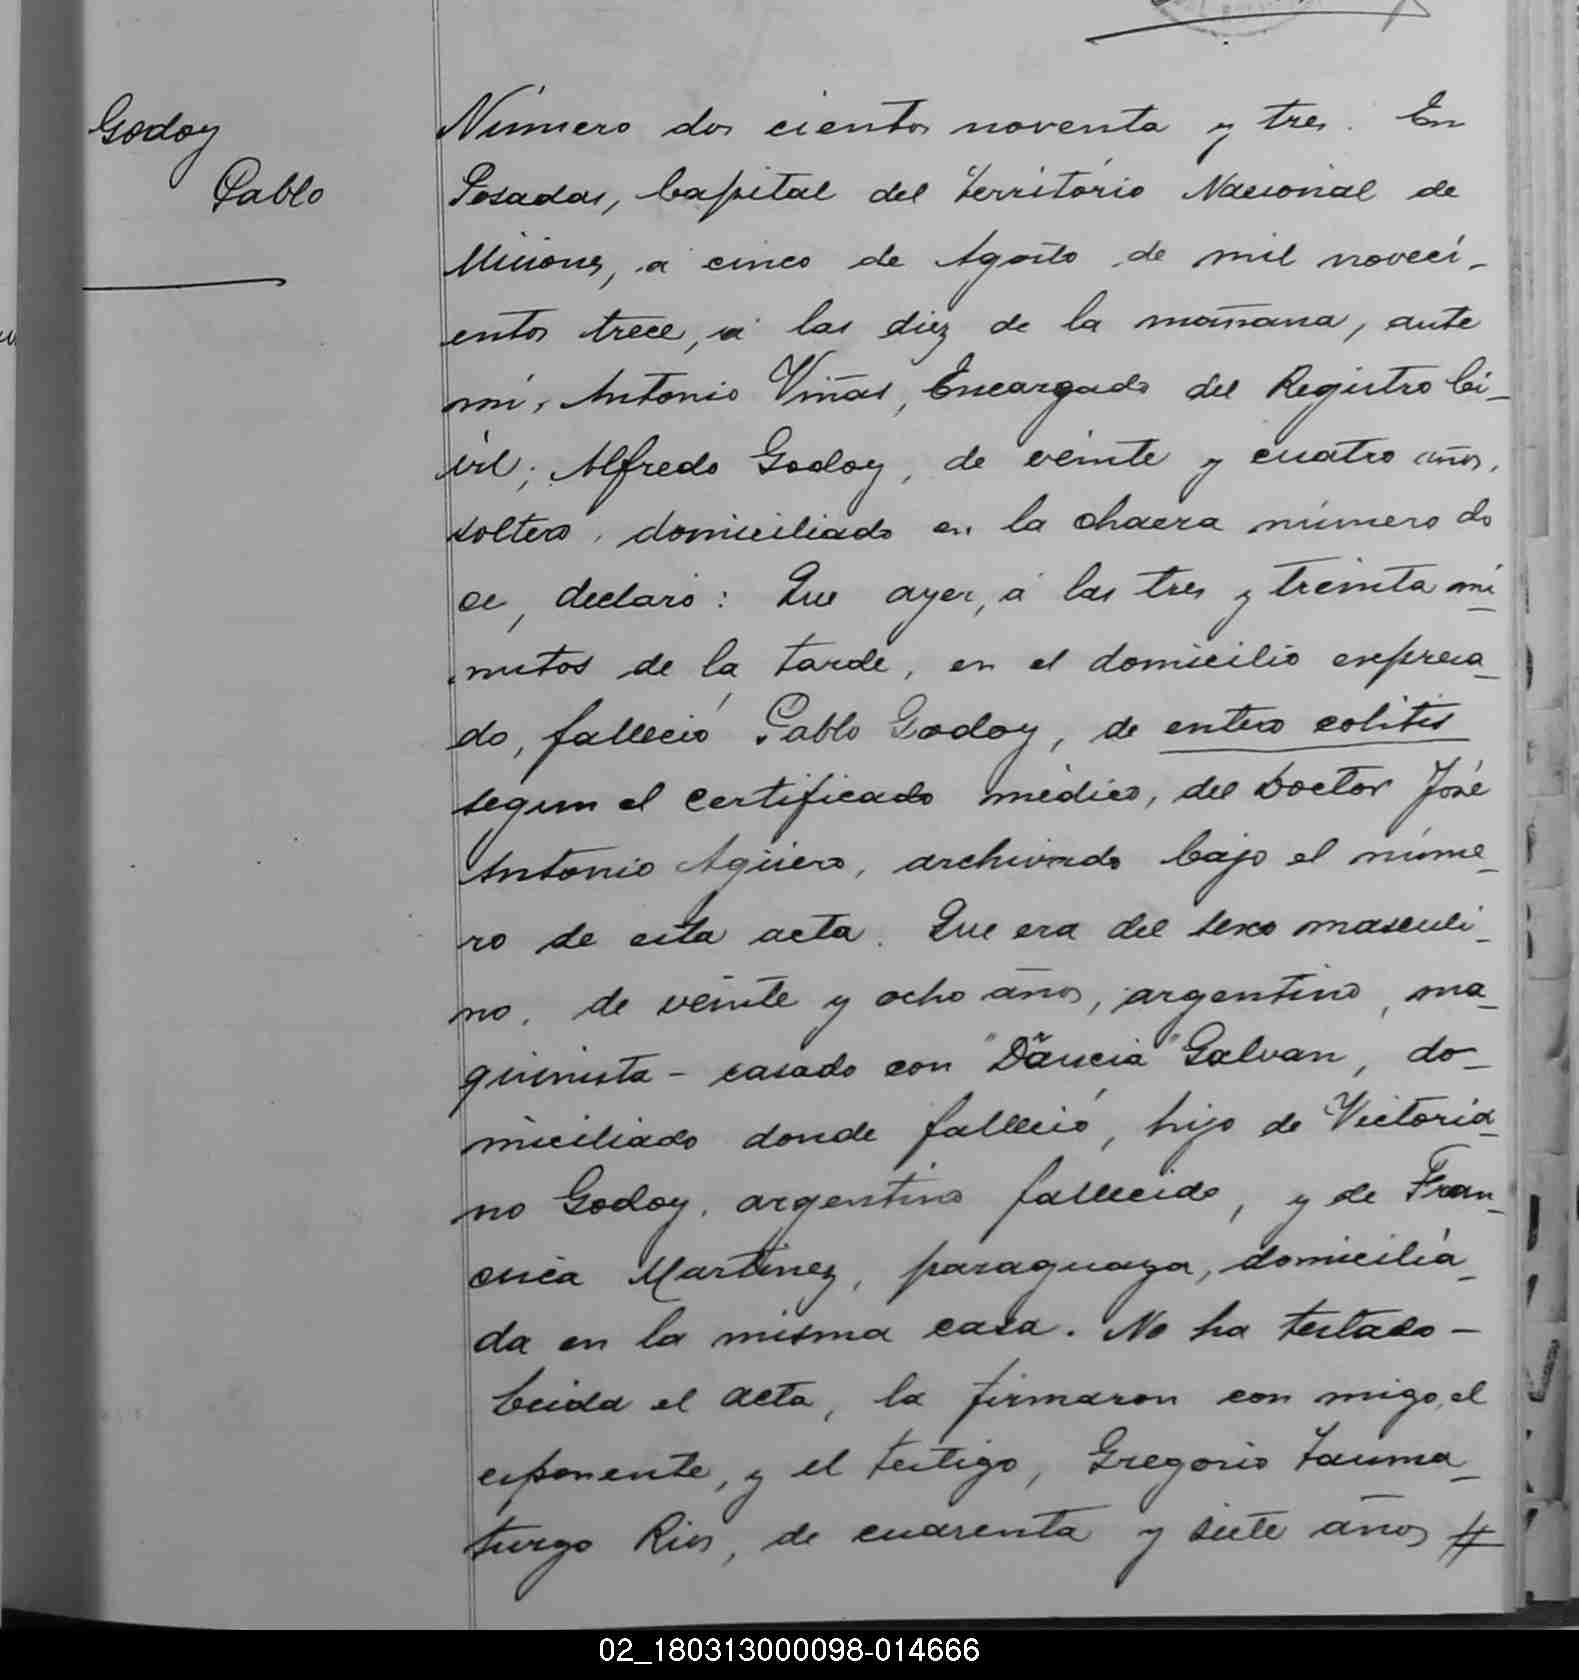 Godoy
Pablo
Número dos cientos noventa y tres. En
Posadas, Capital del territorio Nacional de
Misiones, a cinco de Agosto de mil noveci-
entos trece, a las diez de la mañana, ante
mi, Antonio Viñas, Encargado del Registro Ci-
vil; Alfredo Godoy, de veinte y cuatro años,
soltero, domiciliado en la chacra número do
ce, declaró: Que ayer, á las tres y treinta mi-
nutos de la tarde, en el domicilio expresa-
do, falleció Pablo Godoy, de entero colitis
segun el certificado médico, del Doctor José
Antonio Agüero, archivado bajo el núme-
ro de esta acta. Que era del sexo masculi-
no, de veinte y ocho años, argentino, ma-
quinista - casado con Galvan, do-
miciliado donde falleció, hijo de Victoria-
no Godoy, argentino fallecido, y de Fran-
cisca Martinez, paraguaya, domicilia-
da en la misma casa. No ha testado -
Leida el acta, la firmaron con migo, el
esponente, y el testigo, Gregorio Tauma-
turgo Rios, de cuarenta y siete años #
02_180313000098-014666